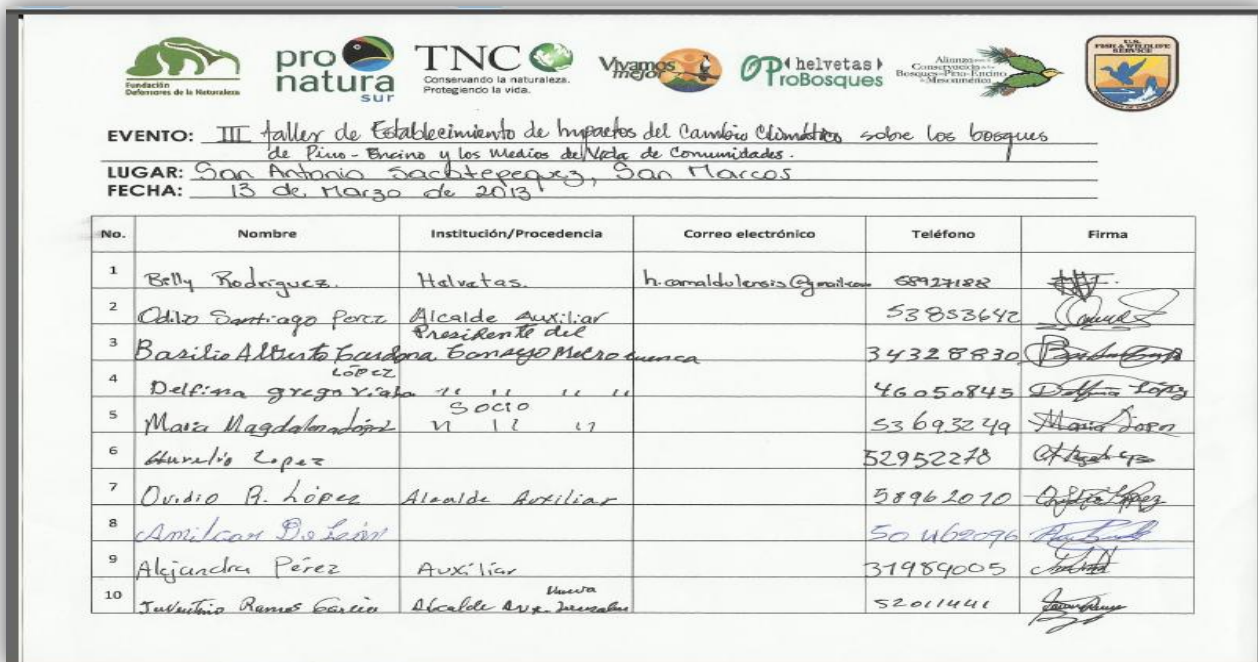 Fundación
Defensores de la Naturaleza
pro natura sur
TNC
Conservando la naturaleza.
Protegiendo la vida.
Vivamos mejor
helvetas
ProBosques
Alianza para la
Conservación de los
Bosques de Pino-Encino
de Mesoamérica
U.S.
FISH & WILDLIFE
SERVICE
EVENTO: III taller de Establecimiento de Impactos del Cambio Climático sobre los bosques
de Pino-Encino y los Medios de Vida de Comunidades.
LUGAR: San Antonio Sacatepequez, San Marcos
FECHA: 13 de Marzo de 2013
No. Nombre Institución/Procedencia Correo electrónico Teléfono Firma
1 Billy Rodriguez. Helvetas. 58927188
2 Odilio Santiago Perez Alcalde Auxiliar 53853642
3 Basilio Alberto Cardona Presidente del Consejo Microcuenca 34328830
4 Delfina López 46050845 Delfina López
5 Maria Magdalena López Socio 53693249
6 Aurelio Lopez 52952278
7 Ovidio R. López Alcalde Auxiliar 58962010
8 Amilcar De León
9 Alejandra Pérez Auxiliar 31989005
10 Juventino Ramos Garcia Alcalde Aux. Nueva Jerusalen 52011441